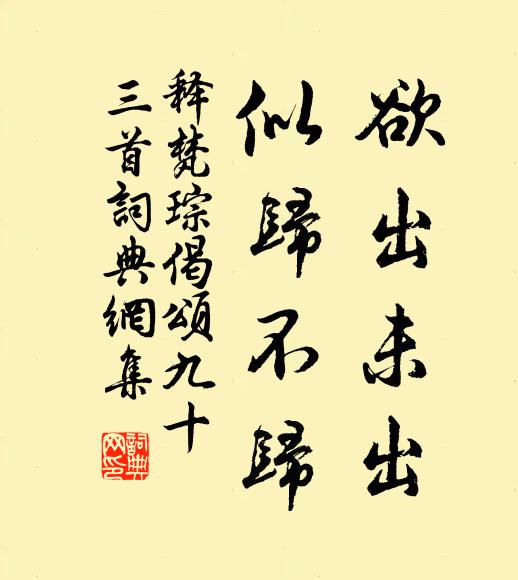 欲出未出
似歸不歸
釋梵琮偈頌九十
三首詞典網集
詞典
网印